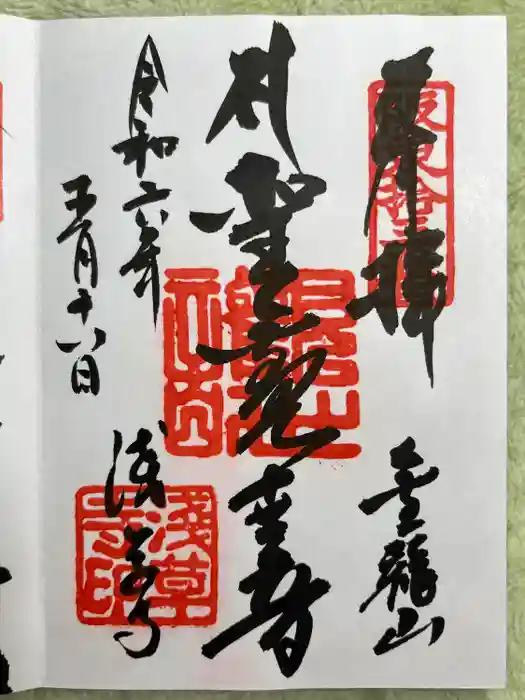 坂東拾三番
奉拝
金龍山
聖観世音
令和六年
五月十八日
浅草寺
淺草
寺印